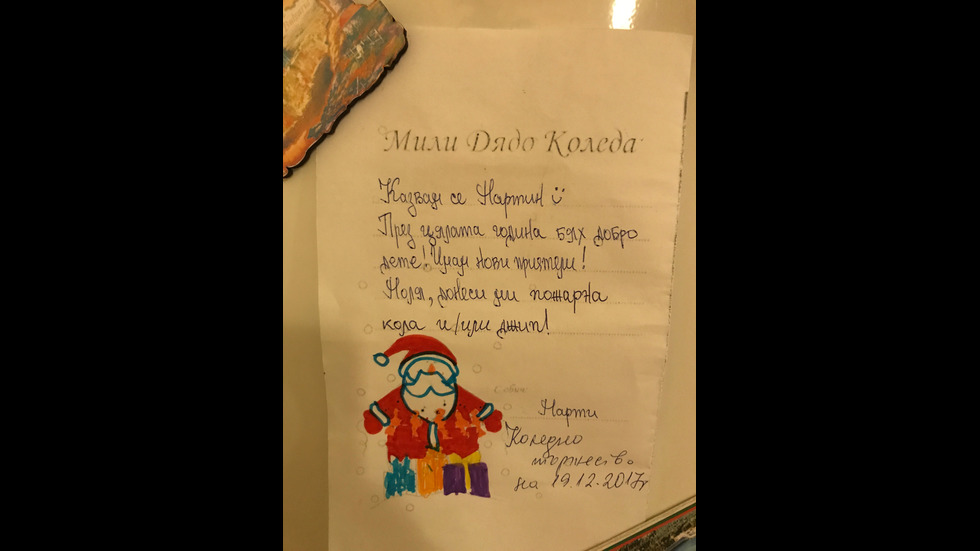 Мили Дядо Коледа
Казвам се Мартин
През цялата година бях добро
дете! Имам нови приятели!
Моля, донеси ми пожарна
кола и/или джип!
С обич:
Марти
Коледно
тържество
на 19.12.2017г